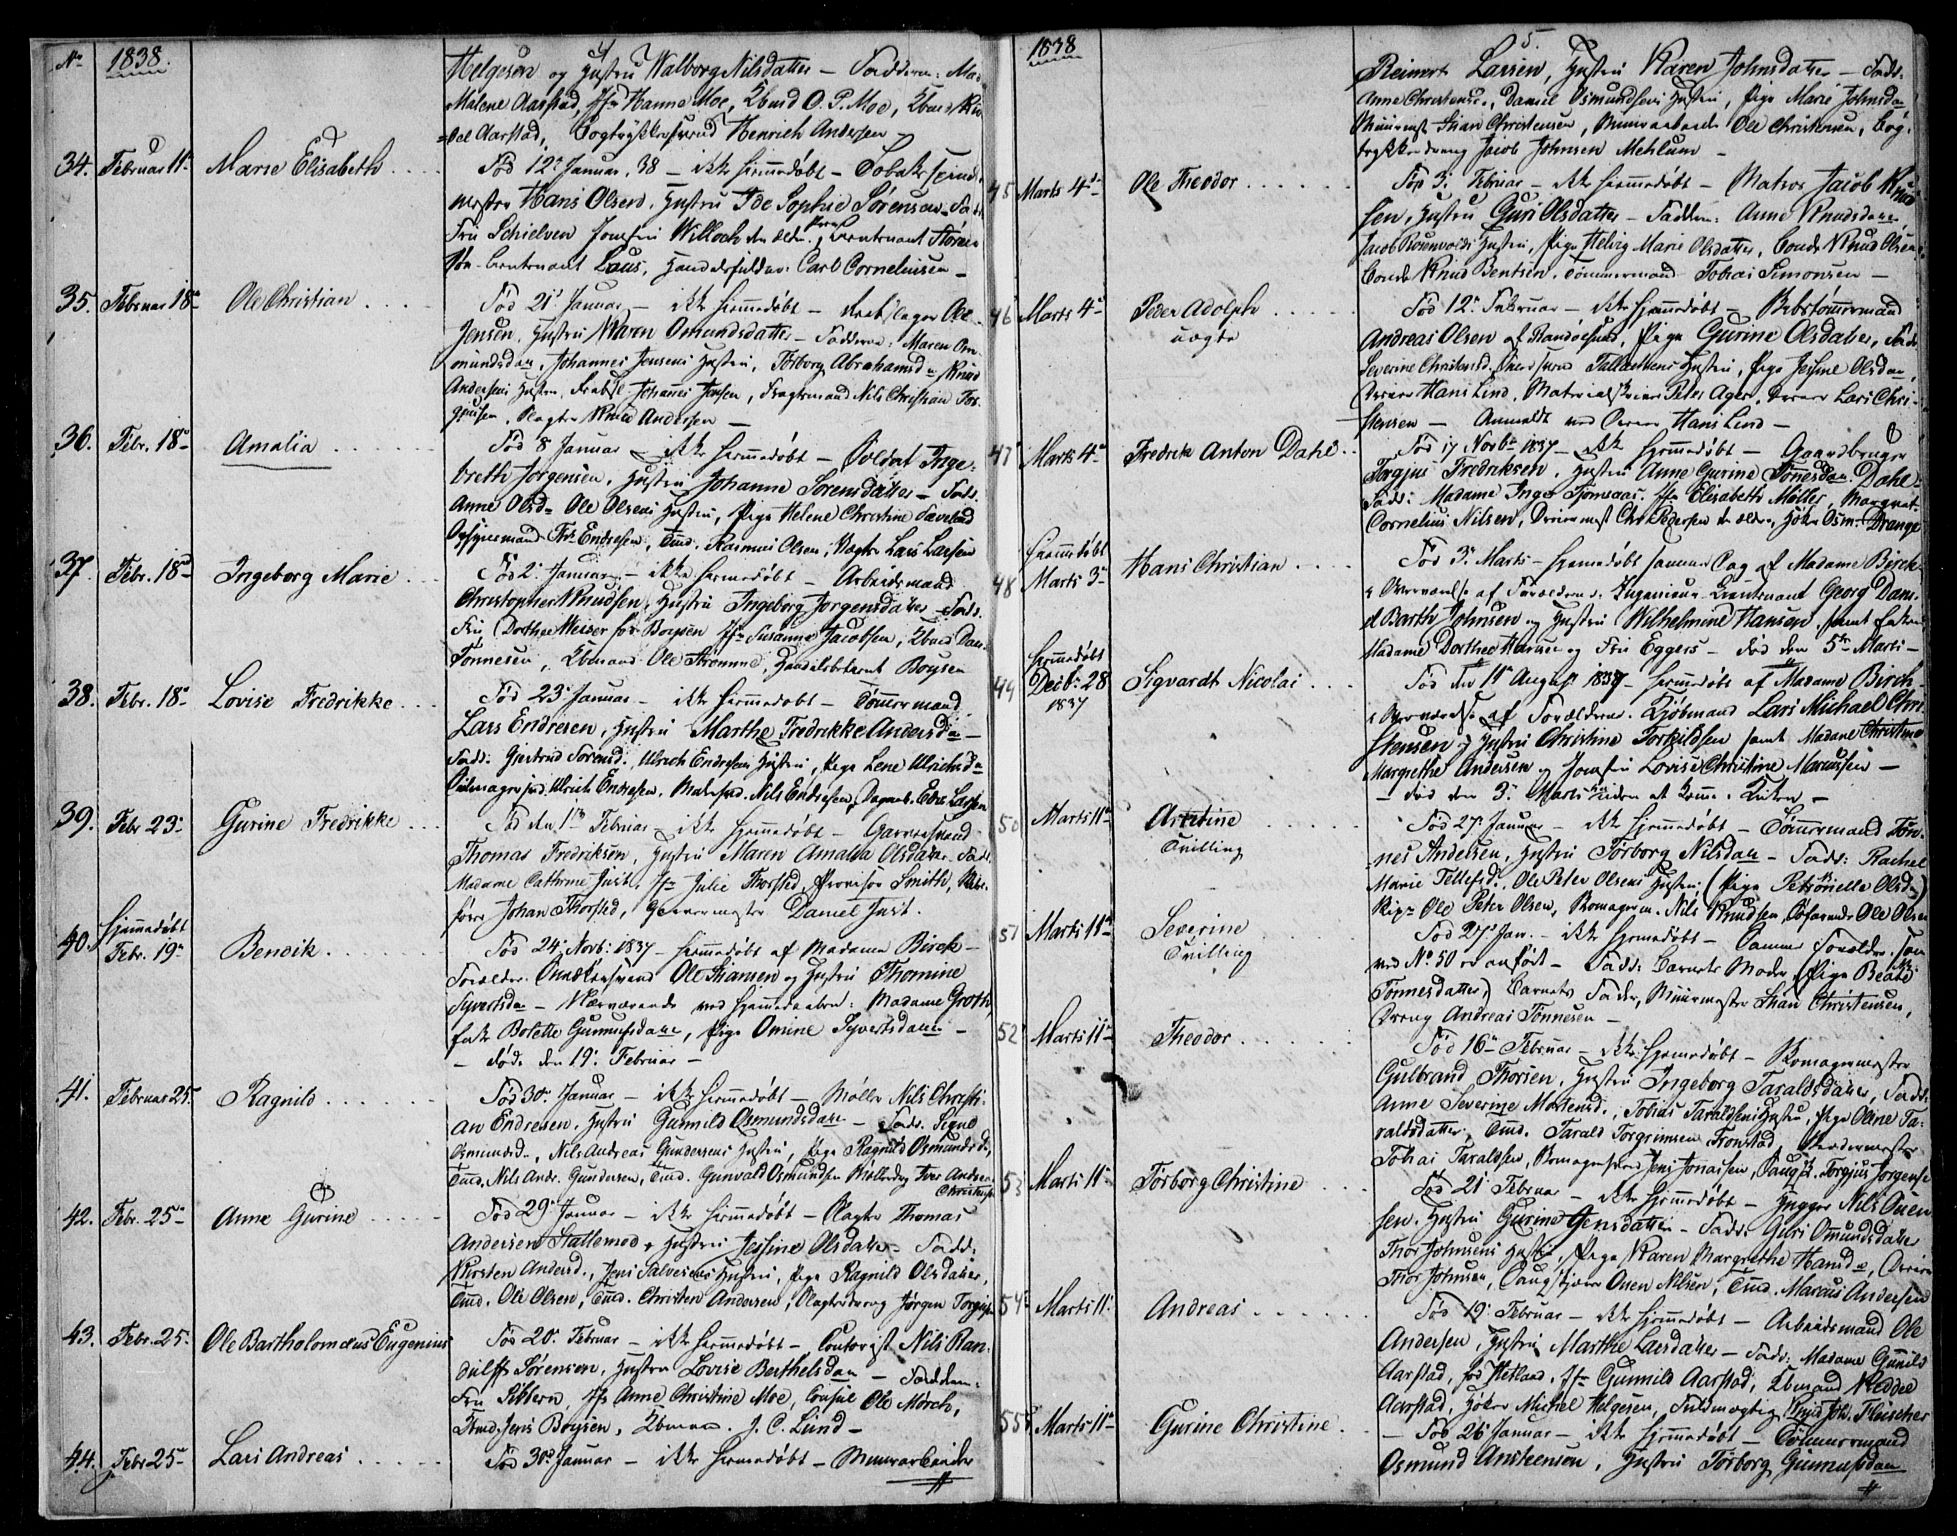 No 1838.
4
Helgesen og Hustru Walborg Nilsdatter — Faddere: Mad.
Malene Aarstad, Jfr Hanne Moe, Kbmd O. P. Moe,
Aarstad, Bogtrykkersvend Henrich Andersen
34. Februar 11te Marie Elisabeth . . . . Fød 12te Januar 38 — ikke hjemmedøbt — Tobaksspinde-
mester Hans Olsen, Hustru Ide Sophie Sørensen — Fadd.
Fru Schielven Jomfru Willoch den ældre, Leutenant
Leutenant Laus, Handelsfuldm. Carl Corneliussen —
35. Februar 18de Ole Christian . . . Fød 21de Januar — ikke hjemmedøbt — Ole
Jensen, Hustru Maren Omundsdatter — Faddere: Maren Om-
mundsdatter, Johannes Jensens Hustru, Torborg Abrahamsd. Knud
Andersens Hustru, Johannes Jensen, Nils Christian Tor-
Knud Andersen —
36. Febr. 18de Amalia . . . . . . Fød 8 Januar — ikke hjemmedøbt — Soldat Inge-
breth Jørgensen, Hustru Johanne Sørensdatter — Fadd.
Anne Olsd. Ole Olsens Hustru, Pige Helene Christine
Endresen, Tmd. Rasmus Olsen, Lars Larsen
37. Febr. 18de Ingeborg Marie . . . Fød 2. Januar — ikke hjemmedøbt — Arbeidsmand
Christopher Knudsen, Hustru Ingeborg Jørgensdatter — Fadd.
Fru Dorthea Weiser før Boysen Jfr Susanne Jacobsen, Kbmd Dan.
Tønnesen, Kbmand Ole Strømme, Handelsbetjent Boysen
38. Febr. 18de Lovise Fredrikke . . . Fød 23de Januar — ikke hjemmedøbt — Tømmermand
Lars Endresen, Hustru Marthe Fredrikke Andersd. —
Fadd: Gjertrud Sørensd., Ulrich Endresens Hustru, Pige Lene Ulrichsd.
Ulrich Endresen, Nils Endresen, Larsen
39. Febr 23de Gurine Fredrikke . . . Fød den 1ste Februar — ikke hjemmedøbt — Garversvend
Thomas Fredriksen, Hustru Maren Amalia Olsdatter — Fadd.
Madame Cathrine Just, Jfr Julie Thorsted, Provisor Smith,
Johan Thorsted, Garvermester Daniel Just.
Hjemmedøbt
40. Febr. 19de Bendik . . . . . . Fød 24de Novb: 1837 — hjemmedøbt af Madame Birck —
Forældre Ole Hansen og Hustru Thomine
Syvertsd. — Nærværende ved Hjemmedaaben: Madame Groth,
Botelle Gunnufsdatter, Pige Omine Syvertsdatter —
— død den 19de Februar —
41. Februar 25. Ragnild . . . . . . Fød 30te Januar — ikke hjemmedøbt — Møller Nils Christi-
an Endresen, Hustru Gunnild Osmundsdatter — Fadd. Signe
Osmundsd., Nils Andreas Gundersens Hustru, Pige Ragnild Osmundsd.
Tmd. Nils Andr. Gundersen, Tmd. Gunvald Osmundsen Iver Andreas
Christensen
42. Febr. 25de Anne Gurine . . . . . Fød 29de Januar — ikke hjemmedøbt — Slagter Thomas
Andersen Stallemoe, Hustru Jessine Olsdatter — Fadd:
Kirsten Andersd., Jens Salvesens Hustru, Pige Ragnild Olsdatter,
Tmd. Ole Olsen, Tmd. Christen Andersen, Slagterdreng Jørgen
43. Febr. 25. Ole Bartholomæus Eugenius Fød 20de Februar — ikke hjemmedøbt — Contorist Nils Ran-
dulff Sørensen, Hustru Lovise Berthelsdatter — Faddere:
Fru Jfr Anne Christine Moe, Consul Ole Mørch,
Jens Boysen, Kbmand J. C. Lund —
44. Febr 25de Lars Andreas . . . . . Fød 30te Januar — ikke hjemmedøbt — Murerarbeider
1838
5.
Reinert Larsen, Hustru Karen Johnsdatter — Fadd:
Anne Christensd., Daniel Osmundsens Hustru, Pige Marie Johnsda.
Christensen, Murerarbeider Ole Christensen, Bog-
trykkerdreng Jacob Johnsen Mehlum —
45 Marts 4de Ole Theodor . . . . . . Fød 3. Februar — ikke hjemmedøbt — Matros Jacob Knud-
sen, Hustru Guri Olsdatter — Faddere: Anne Knudsdatter
Jacob Hustru, Pige Helvig Marie Olsdatter, Bonde Knud Olsen
Bonde Knud Bentsen, Tømmermand Tobias Simonsen —
46 Marts 4de Peder Adolph . . . . . Fød 12te Februar — ikke hjemmedøbt — Bebstømmermand
uægte
Andreas Olsen af Randøesund, Pige Gurine Olsdatter, Fadd.
Severine Christensd. Tallaksens Hustru, Pige Jessine Olsdatter,
Hans Lind, Peter Ager, Lars Chri-
stensen — Anmeldt ved Hans Lind —
47 Marts 4de Fredrik Anton Dahl . . Fød 17 Novbr 1837 — ikke hjemmedøbt — Gaardbruger
Torgius Fredriksen, Hustru Anne Gurine Tønnesdatter Dahl —
Fadd: Madame Inger Jfr Elisabeth Møller,
Cornelius Nilsen, Chr Pedersen den ældre, Høker Osm. Drange
Hjemmedøbt
48 Marts 3de Hans Christian . . . . Fød 3. Marts — hjemmedøbt samme Dag af Madame Birck
i Overværelse af Forældrene. Ingenieur-Lieutenant Georg Dani-
el Barth Johnsen og Hustru Wilhelmine Hansen, samt
Madame Dorthea Hansen og Fru Eggers — død den 5te Marts —
Hjemmedøbt
49 Decbr 28 Sigvardt Nicolai . . . Fød den 15 August 1837 — hjemmedøbt af Madame Birch —
1837
i Overværelse af Forældrene. Kjøbmand Lars Michael Chri-
stensen og Hustru Christine Torkildsen samt Madame Christine
Margrethe Andersen og Jomfru Lovise Christine Marcussen —
— død den 3. Marts uden at komme i Kirken —
50 Marts 11te Arentine . . . . . Fød 27de Januar — ikke hjemmedøbt — Tømmermand Tøn-
Tvilling
nes Andersen, Hustru Torborg Nilsdatter — Fadd: Rachel
Marie Tellefsd. Ole Peter Olsens Hustru (Pige Petronelle Olsd.)
Ole Peter Olsen, Nils Knudsen, Ole Olsen
51 Marts 11te Severine . . . . Fød 27de Jan. — ikke hjemmedøbt — Samme Forældre som
Tvilling
ved No 50 er anført — Fadd: Barnets Moder (Pige Beate
Tønnesdatter) Barnets Fader, Murermester Christensen,
Dreng Andreas Tønnesen —
52 Marts 11te Theodor . . . . . . Fød 16de Februar — ikke hjemmedøbt —
Gulbrand Thorsen, Hustru Ingeborg Taraldsdatter, Fadd:
Anne Severine Mortensd., Tobias Taraldsens Hustru, Pige Oline Ta-
raldsdatter, Tmd. Tarald Torgrimsen Fronstad,
Tobias Taraldsen, Jens Jonassen, Torgius Jørgensen
53 Marts 11te Torborg Christine . . . Fød 21de Februar — ikke hjemmedøbt — Nils Ouen-
sen, Hustru Gurine Jensdatter — Fadd: Guri Omundsdatter
Thor Johnsens Hustru, Pige Karen Margrethe Hansd.,
Thor Johnsen, Ouen Nilsen, Tmd. Marcus Andersen
54 Marts 11te Andreas . . . . . . Fød 19de Februar — ikke hjemmedøbt — Arbeidsmand Ole
Andersen, Hustru Marthe Larsdatter — Fadd: Madame Gunild
Aarstad, fød Hetland, Jfr Gunnild Aarstad, Kbmand Keddel
Aarstad, Høker Michel Helgesen, Fuldmægtig Joh. Fleischer
55 Marts 11te Gurine Christine . . — Fød 26 Januar — ikke hjemmedøbt — Tømmermand
Osmund Ansteensen, Hustru Torborg Gunnufsdatter